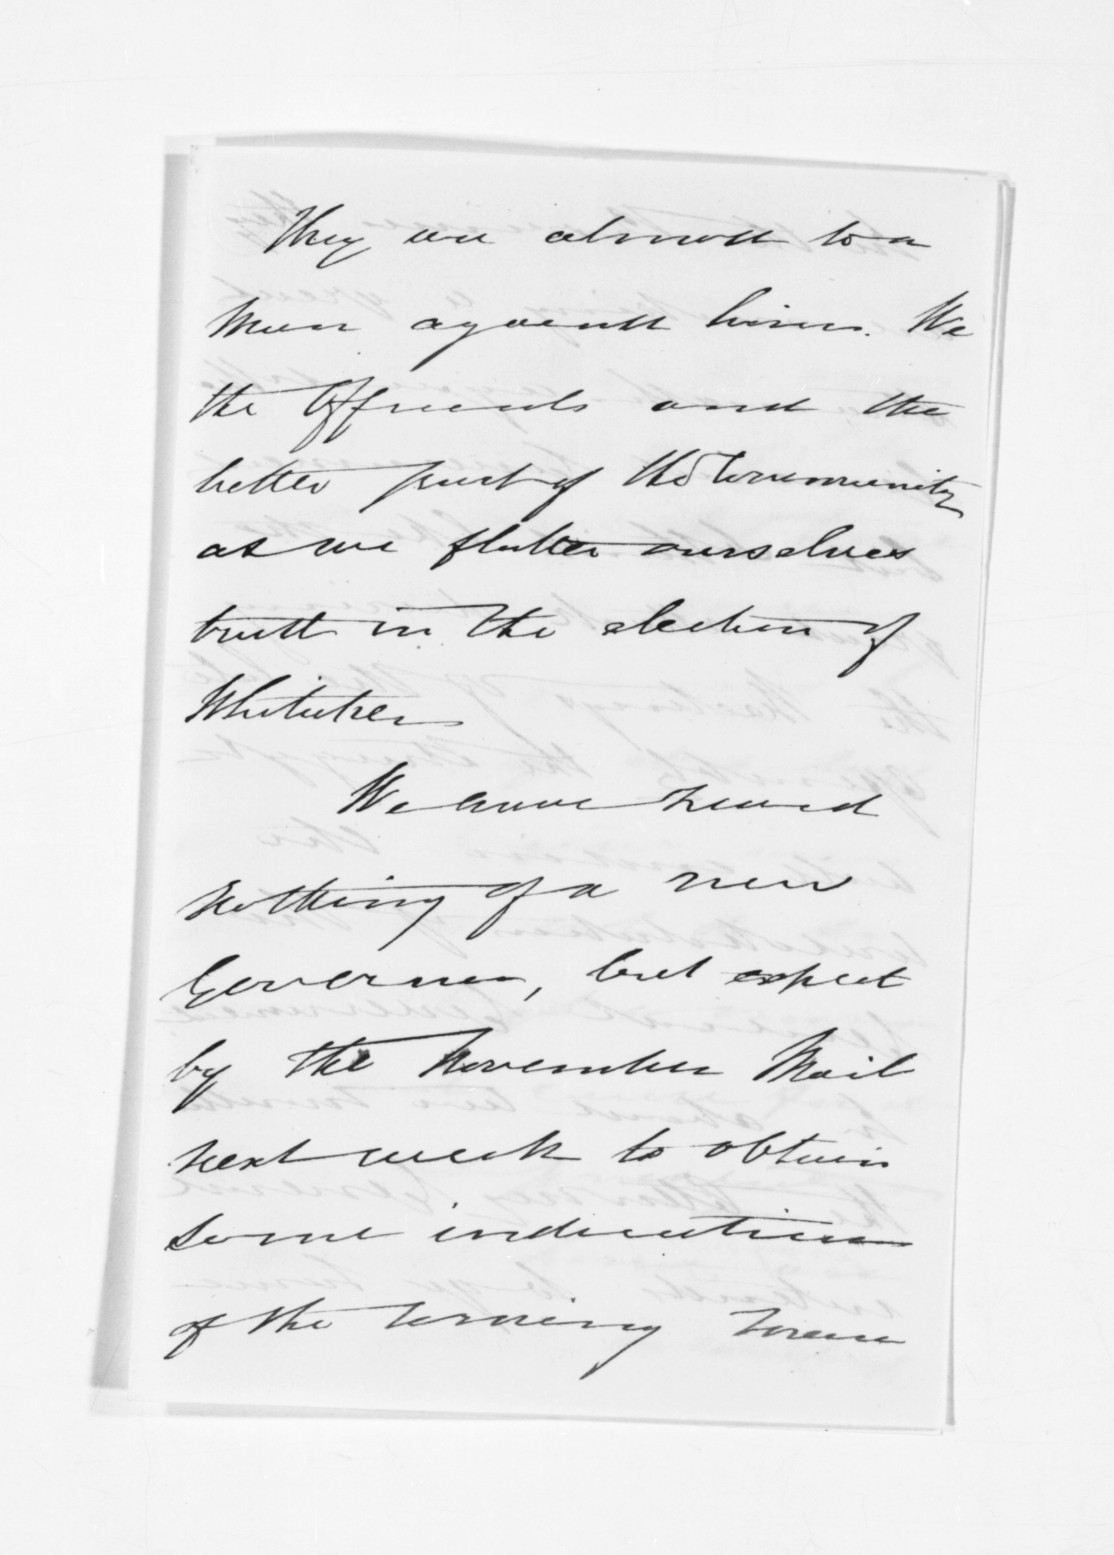 They are almost to a
Man against him. We
the Officials and the
better part of the Community
as we flatter ourselves
trust in the election of
Whitaker
We have heard
nothing of a new
Governor, but expect
by the November Mail
next week to obtain
some indication
of the coming man